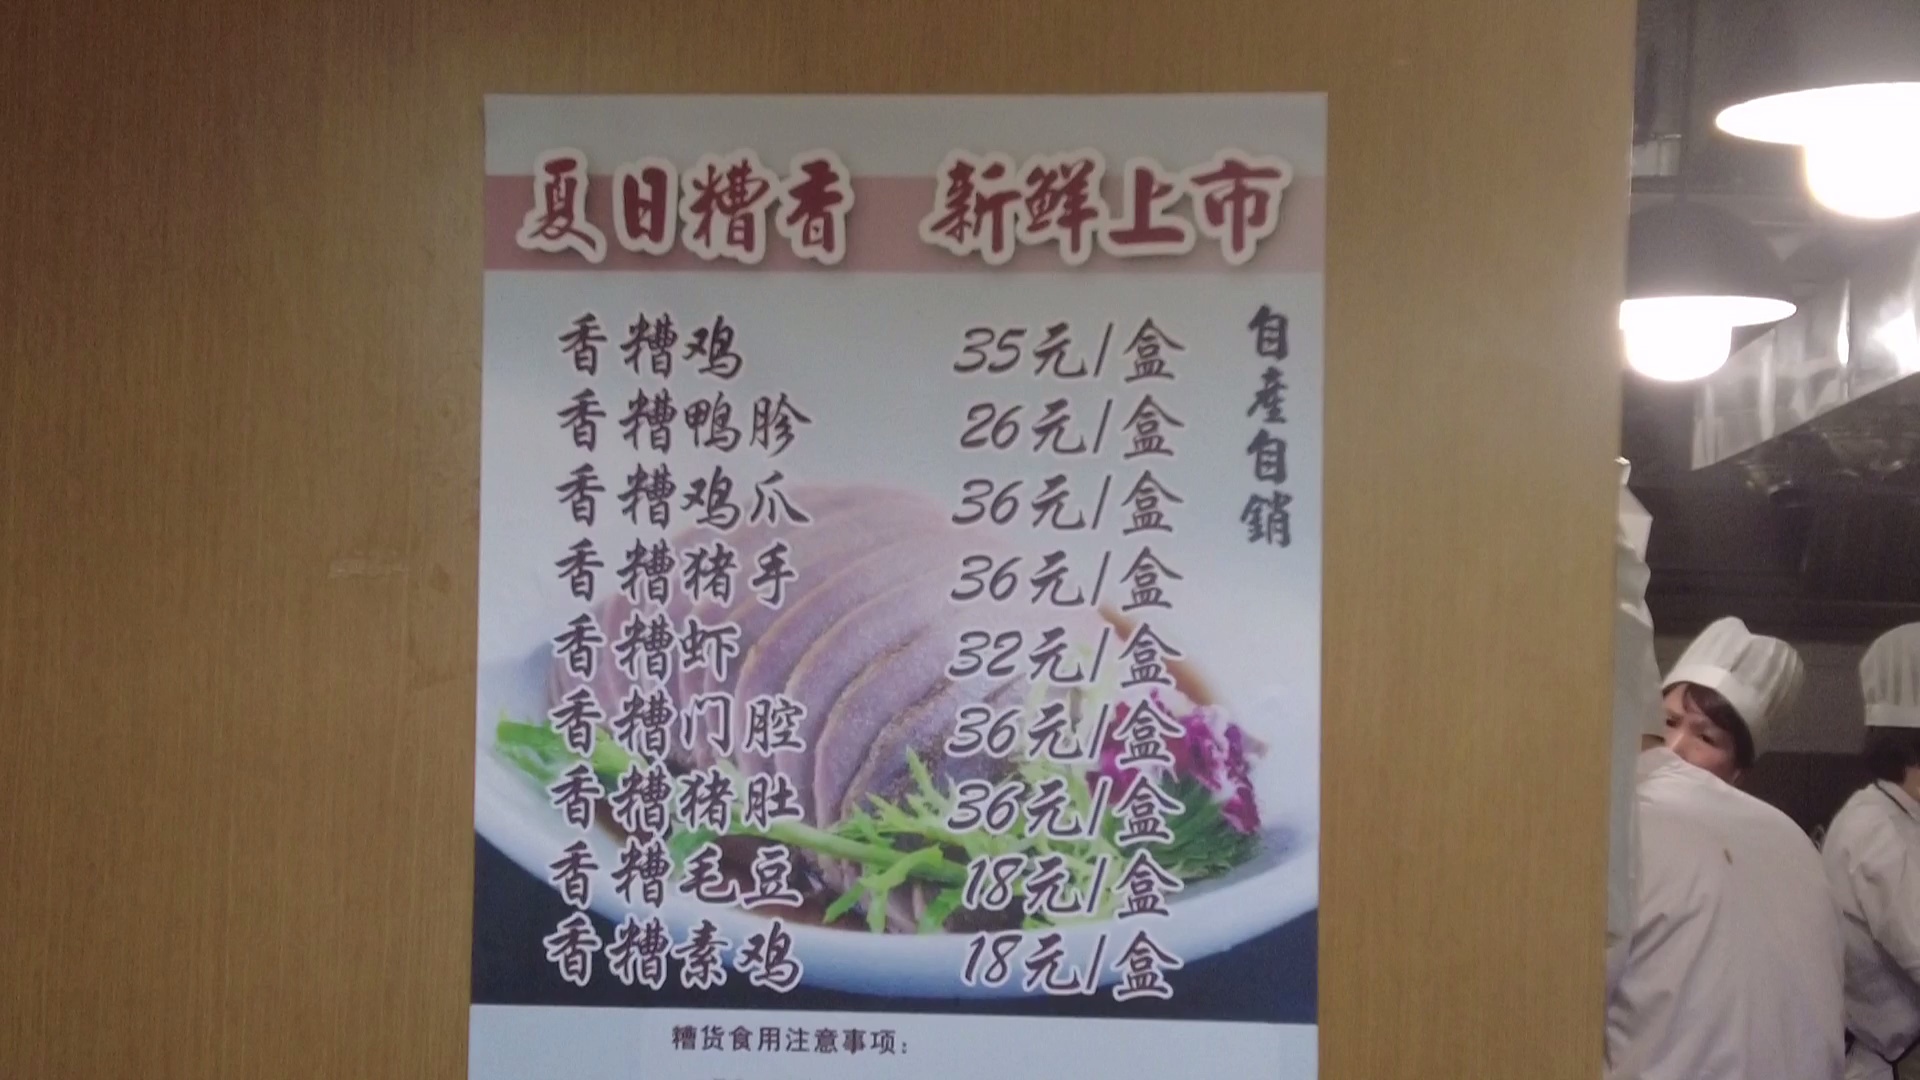 夏日糟香 新鲜上市
香糟鸡 35元/盒
香糟鸭胗 26元/盒
香糟鸡爪 36元/盒
香糟猪手 36元/盒
香糟虾 32元/盒
香糟门腔 36元/盒
香糟猪肚 36元/盒
香糟毛豆 18元/盒
香糟素鸡 18元/盒
自產自銷
糟货食用注意事项：